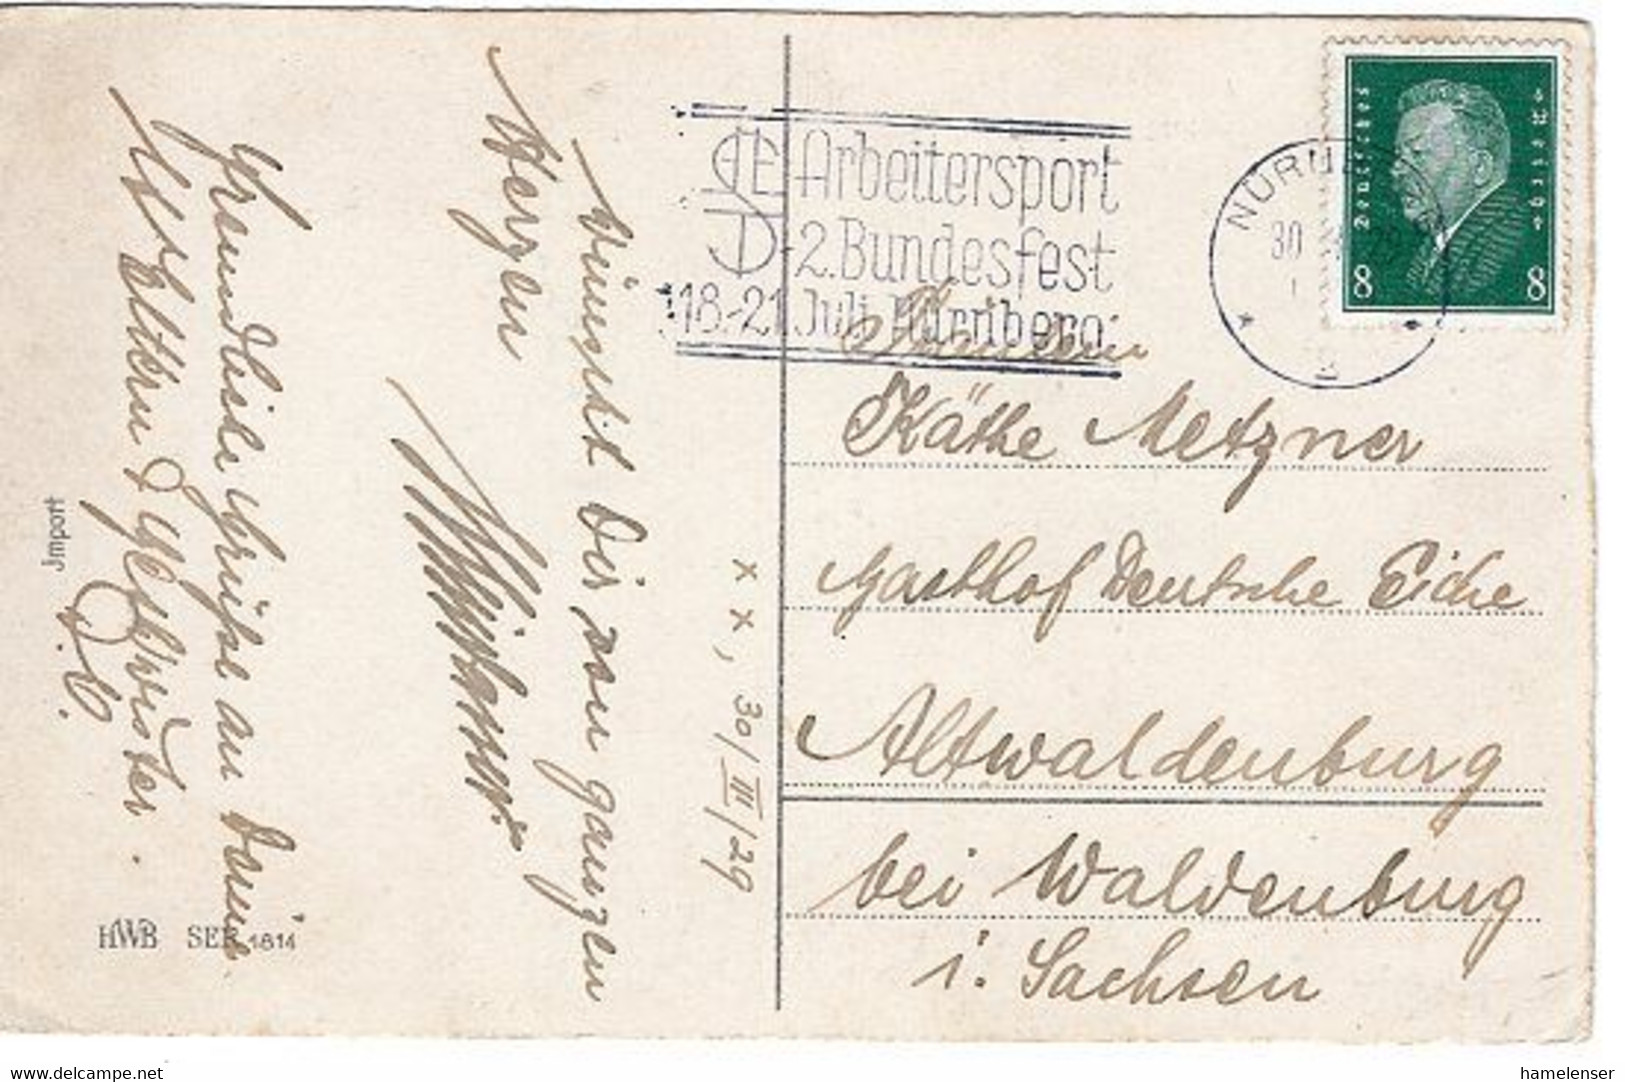 wünscht Dir von ganzen
Herzen
Freundliche Grüße an Deine
Eltern & Geschwister.
D. O.
x x, 30/III/29
Jmport
HWB SER. 1814
Arbeitersport
2. Bundesfest
18.-21. Juli Nürnberg
NÜRN
30
Deutsches Reich
8 8
Fräulein
Käthe Metzner
Gasthof Deutsche Eiche
Altwaldenburg
bei Waldenburg
i. Sachsen
www.delcampe.net
hamelenser